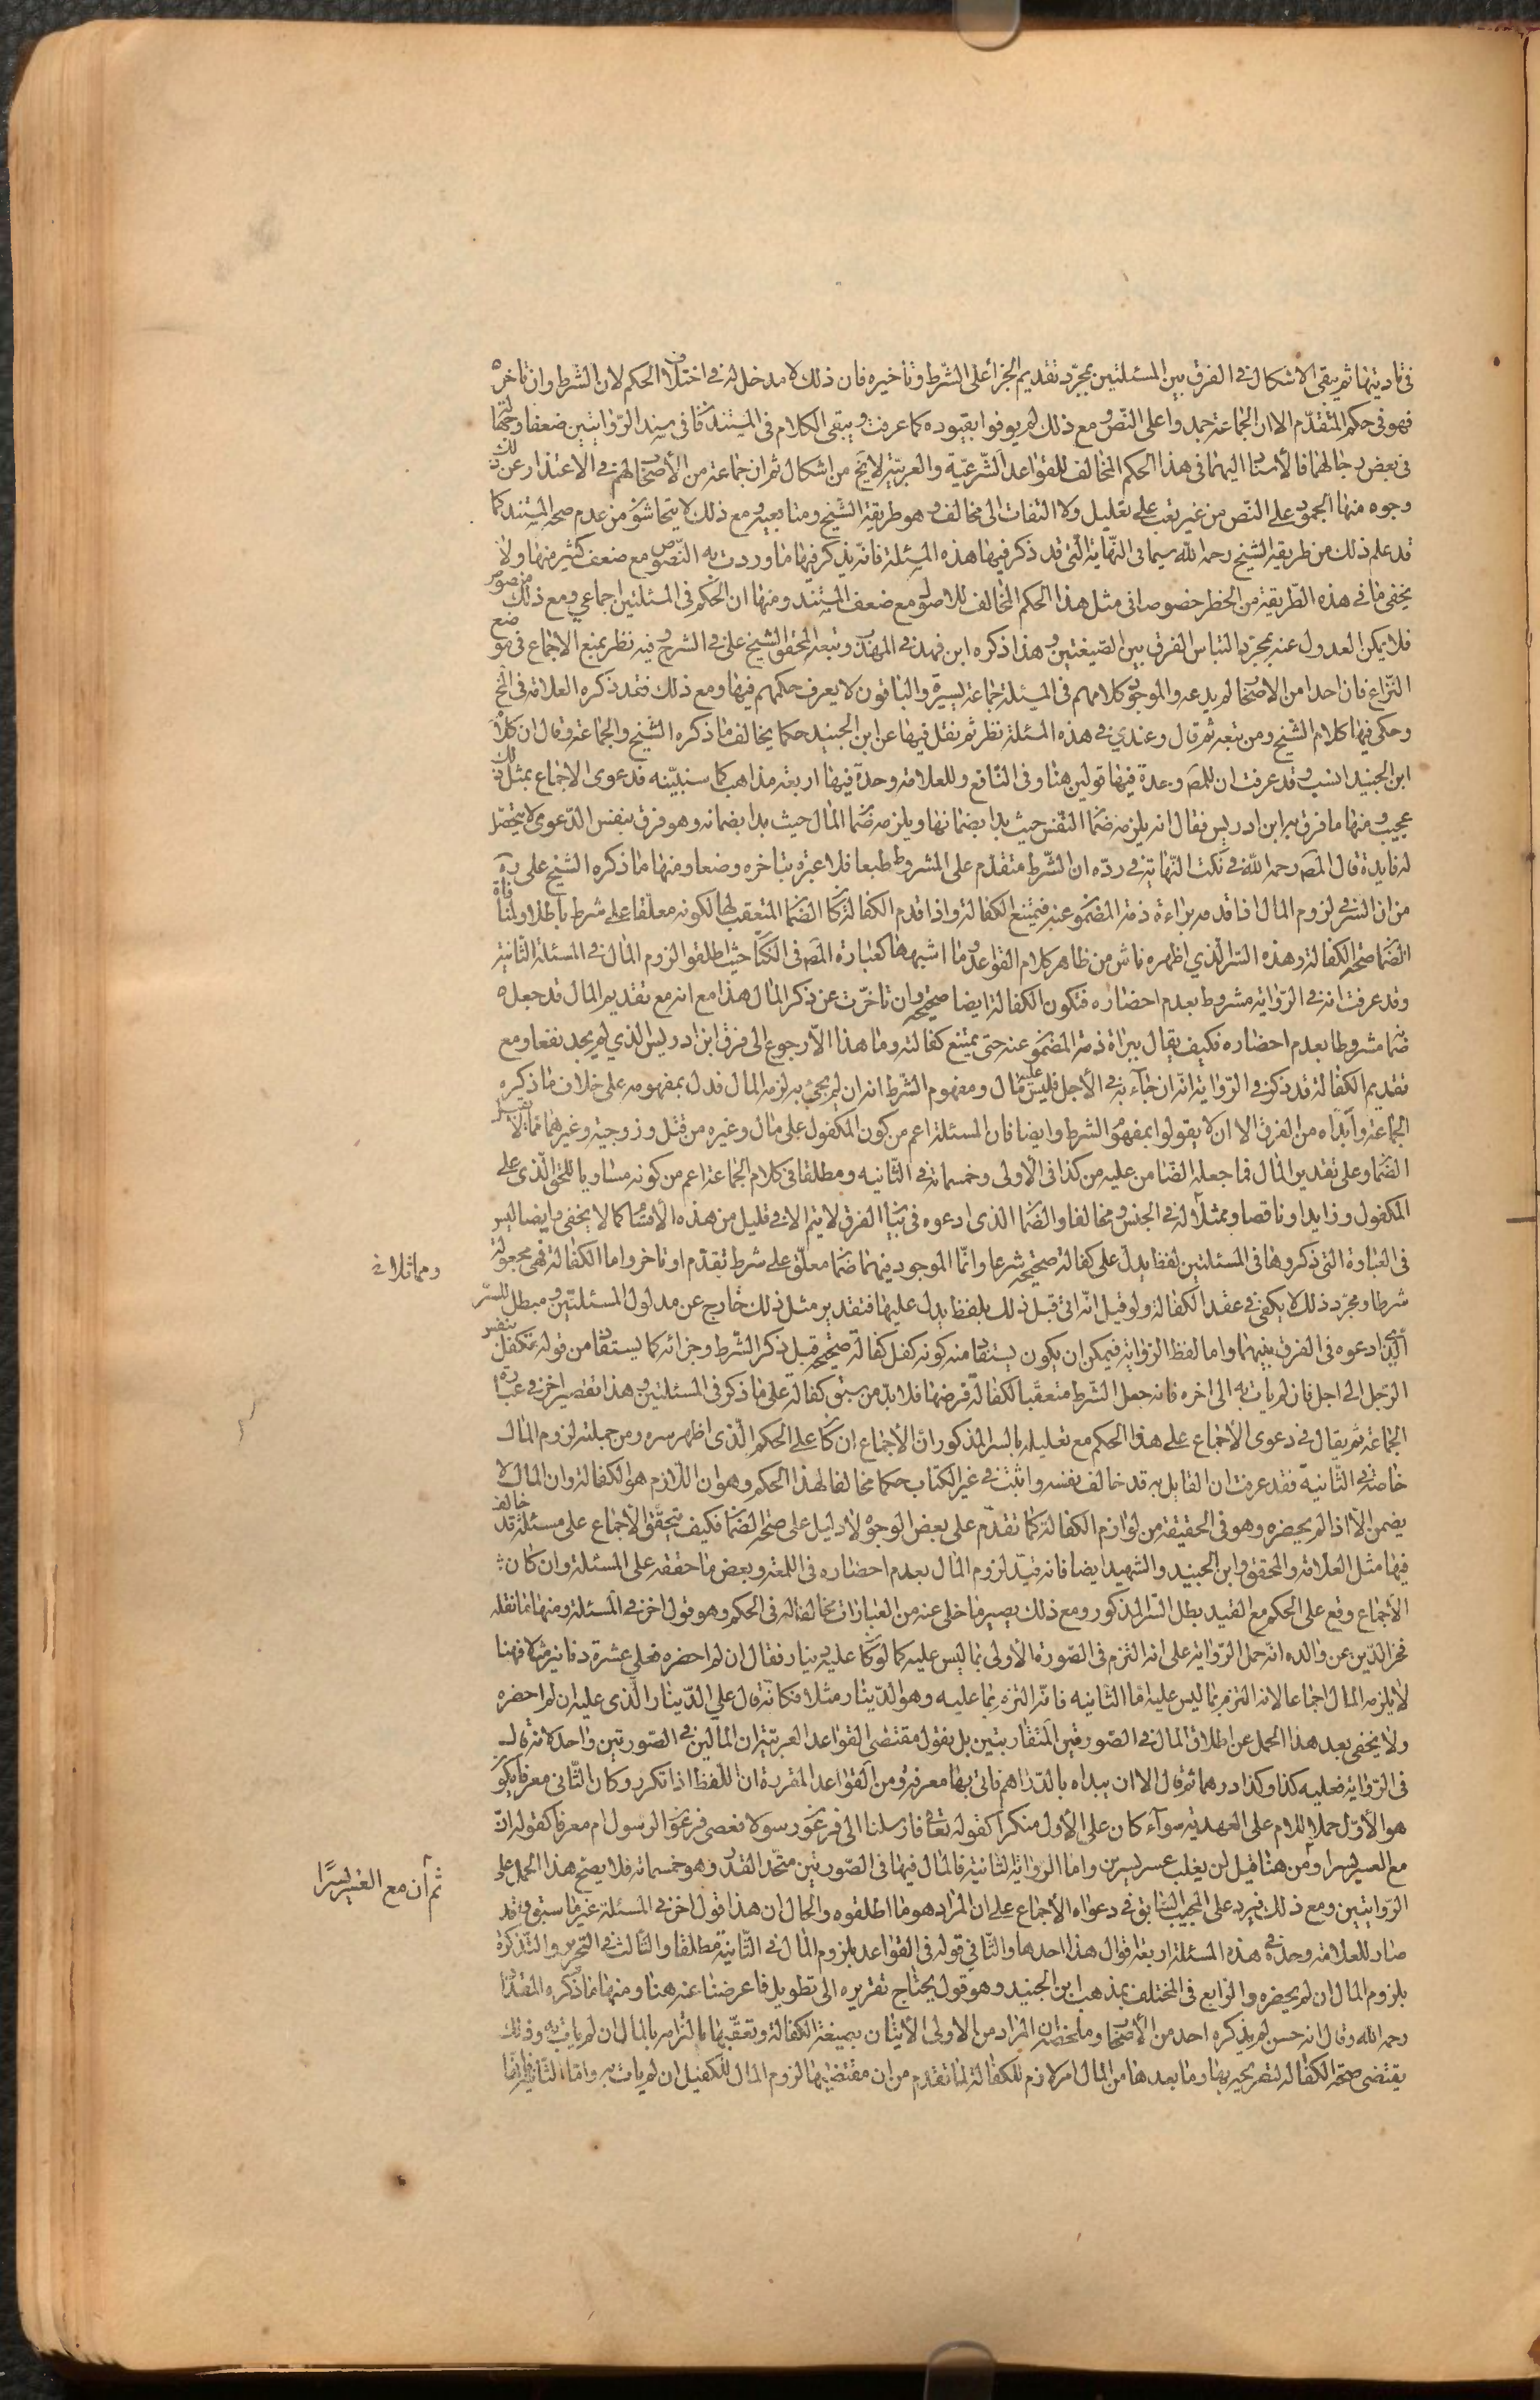 في تاديتها ثم يبقى الاشكال في الفرق بين المسئلتين بمجرّد تقديم الجزأ على الشّرط وتأخيره فان ذلك لا مدخل له في اختلاف الحكم لان الشّرط وان تاخره
فهو في حكم المتقدّم الا ان الجماعة جمدوا على النّص ومع ذلك لم يوفوا بقيوده كما عرفت ويبقى الكلام في المستند فان في سند الرّوايتين ضعفا وجهالة
في بعض رجالهما فالاستناد اليهما في هذا الحكم المخالف للقواعد الشّرعيّة والعربيّة لا يخ من اشكال ثم ان جماعة من الأصحاب لهم في الاعتذار عن ذلك
وجوه منها الجمود على النّص من غير تعب على تعليل ولا التفات الى مخالف وهو طريقة الشّيخ ومتابعيه ومع ذلك لا يتحاشون من عدم صحة المستند كما
قد علم ذلك من طريقة الشيخ رحمه اللّه سيما في النّهاية الّتي قد ذكر فيها هذه المسئلة فانّه يذكر فيها ما وردت به النّصوص مع ضعف كثير منها ولا
يخفى ما في هذه الطّريقة من الخطر خصوصا في مثل هذا الحكم المخالف للاصول مع ضعف المستند ومنها ان الحكم في المسئلتين اجماعي ومع ذلك منصوص
فلا يمكن العدول عنه بمجرّد التباس الفرق بين الصّيغتين وهذا ذكره ابن فهد في المهذّب وتبعه المحقق الشيخ علي في الشرح وفيه نظر بمنع الاجماع في موضع
النّزاع فان احدا من الاصحاب لم يدعه والموجود كلامهم في المسئلة جماعة يسيرة والباقون لا يعرف حكمهم فيها ومع ذلك فقد ذكره العلامة في المخ
وحكى فيها كلام الشّيخ ومن تبعه ثم قال وعندي في هذه المسئلة نظر ثم نقل فيها عن ابن الجنيد حكما يخالف ما ذكره الشّيخ والجماعة وقال ان كلام
ابن الجنيد انسب وقد عرفت ان للمصَ وحدة فيها قولين هنا وفى النّافع وللعلامة وحده فيها اربعة مذاهب كما سنبيّنه فدعوى الاجماع بمثل ذلك
عجيب ومنها ما فرق به ابن ادريس فقال انه يلزمه ضمان النّفس حيث بدا بضمانها ويلزمه ضمان المال حيث بدا بضمانه وهو فرق بنفس الدّعوى لا يتحصّل
له فايدة قال المصَ رحمه اللّه في نكت النّهاية في ردّه ان الشّرط متقدم على المشروط طبعا فلا عبرة بتاخره وضعا ومنها ما ذكره الشيخ على ره
من ان السّر في لزوم المال اذا قدمه براءة ذمة المضمون عنه فيمتنع الكفالة واذا قدم الكفالة كان الضّمان المتعقب لها لكونه معلّقا على شرط باطلا ولمنافاة
الضمان صحّة الكفالة وهذه السّر الّذي اظهره ناش من ظاهر كلام القواعد وما اشبهها كعبارة المصَ في الكتاب حيث اطلقوا لزوم المال في المسئلة الثانية
وقد عرفت انه في الرّواية مشروط بعدم احضاره فتكون الكفالة ايضا صحيحة وان تاخرّت عن ذكر المال هذا مع انه مع تقديم المال قد جعله
ضمانا مشروطا بعدم احضاره فكيف يقال ببراءة ذمة المضمون عنه حتى يمتنع كفالته وما هذا الاّ رجوع الى فرق ابن ادريس الذي لم يجد نفعا ومع
تقديم الكفالة قد ذكر في الرّواية انّه ان جآء به في الأجل فليس عليه مال ومفهوم الشّرط انه ان لم يجئ به لزمه المال فدل بمفهومه على خلاف ما ذكره
الجماعة وآبداه من الفرق الا ان لا يقولوا بمفهوم الشرط وايضا فان المسئلة اعم من كون المكفول على مال وغيره من قتل وزوجية وغيرهما مما لا يقبل
الضّمان وعلى تقدير المال فما جعله الضّامن عليه من كذا في الأولى وخمسمائة في الثّانيه ومطلقا في كلام الجماعة اعم من كونه مساويا للحق الّذي على
المكفول وزايدا وناقصا ومماثلا له في الجنس ومخالفا والضّمان الذي ادعوه في بيان الفرق لا يتم الا في قليل من هذه الأقسام كما لا يخفى وايضا ليس
في العبارة التي ذكروها في المسئلتين لفظ يدلّ على كفالة صحيحة شرعا وانّما الموجود فيهما ضمان معلّق على شرط تقدّم او تاخر واما الكفالة فهي مجعولة
ومماثلا له في
شرطا ومجرّد ذلك لا يكفي في عقد الكفالة ولو قيل انّه اتى قبل ذلك بلفظ يدل عليها فتقدير مثل ذلك خارج عن مدلول المسئلتين ومبطل للسّر
الّذي ادعوه في الفرق بينهما واما لفظ الرّواية فيمكن ان يكون يستفاد منه كونه كفل كفالة صحيحة قبل ذكر الشّرط وجزائه كما يستفاد من قوله تكفل بنفس
الرّجل الى اجل فان لم يات به الى اخره فانه جعل الشّرط متعقّبا لكفالة فرضها فلا بدّ من سبق كفالة على ما ذكر في المسئلتين وهذا تقصير اخر في عبارة
الجماعة ثم يقال في دعوى الأجماع على هذا الحكم مع تعليله بالسّر المذكور ان الأجماع ان كان على الحكم الّذي اظهر سره ومن جملته لزوم المال
خاصّة في الثّانية فقد عرفت ان القايل به قد خالف نفسه واثبت في غير الكتاب حكما مخالفا لهذا الحكم وهو ان اللّازم هو الكفالة وان المال لا
يضمن الاّ اذا لم يحضره وهو في الحقيقة من لوازم الكفالة كما تقدّم على بعض الوجوه لا دليل على صحّة الضمان فكيف يتحقّق الأجماع على مسئلة قد خالف
فيها مثل العلامة والمحقق وابن الجنيد والشهيد ايضا فانه قيّد لزوم المال بعدم احضاره في اللمعة وبعض ما حققه على المسئلة وان كان
الأجماع وقع على الحكم مع القيد بطل السّر المذكور ومع ذلك يصير ما خلى عنه من العبارات مخالفا له في الحكم وهو قول اخر في المسئلة ومنها ما نقله
فخر الدّين عن والده انّه حمل الرّواية على انه التزم في الصّورة الأولى بما ليس عليه كما لو كان عليه دينار فقال ان لم احضره فعلي عشرة دنانير مثلا فهنا
لا يلزمه المال اجماعا لانه التزم بما ليس عليه امّا الثانيه فانّه التزم بما عليه وهو الدّينار مثلا فكانّه قال علي الدّينار الّذي عليه ان لم احضره
ولا يخفى بعد هذا المحمل عن اطلاق المال في الصّورتين المتقاربتين بل نقول مقتضى القواعد العربيّة ان المالين في الصّورتين واحد لانه قال
في الرّواية فعليه كذا وكذا درهما ثم قال الا ان يبدأه بالدّراهم فاتى بها معرفة ومن القواعد المقررة ان اللّفظ اذا تكرر وكان الثّاني معرفا يكون
هو الأوّل حملا للام على العهدية سوآء كان على الأول منكرا كقوله تعالى فارسلنا الى فرعون رسولا فعصى فرعون الرسول ام معرفا كقوله انّ
مع العسر يسرا ومن هنا قيل لن يغلب عسر يسرين واما الرّواية الثانية فالمال فيها في الصّورتين متحّد القدر وهو خمسمائة فلا يصح هذا الحمل على
ثم ان مع العسر يسرًا
الرّوايتين ومع ذلك فيرد على المجيب السّابق في دعواه الأجماع على ان المراد هو ما اطلقوه والحال ان هذا قول اخر في المسئلة غير ما سبق وقد
صار للعلامة وحده في هذه المسئلة اربعة اقوال هذا احدها والثّاني قوله في القواعد بلزوم المال في الثّانية مطلقا والثّالث في التحرير والتّذكرة
بلزوم المال ان لم يحضره والرابع في المختلف بمذهب ابن الجنيد وهو قول يحتاج تقريره الى تطويل فاعرضنا عنه هنا ومنها ما ذكره المقداد
رحمه اللّه وقال انه حسن لم يذكره احد من الأصحاب وملخصه ان المراد من الاولى الأتيان بصيغة الكفالة وتعقّبها بالتزامه بالمال ان لم يات به وذلك
يقتضى صحّة الكفالة لتصريحه بها وما بعدها من المال امر لازم للكفالة لما تقدم من ان مقتضيها لزوم المال للكفيل ان لم يات به واما الثانية فانّها